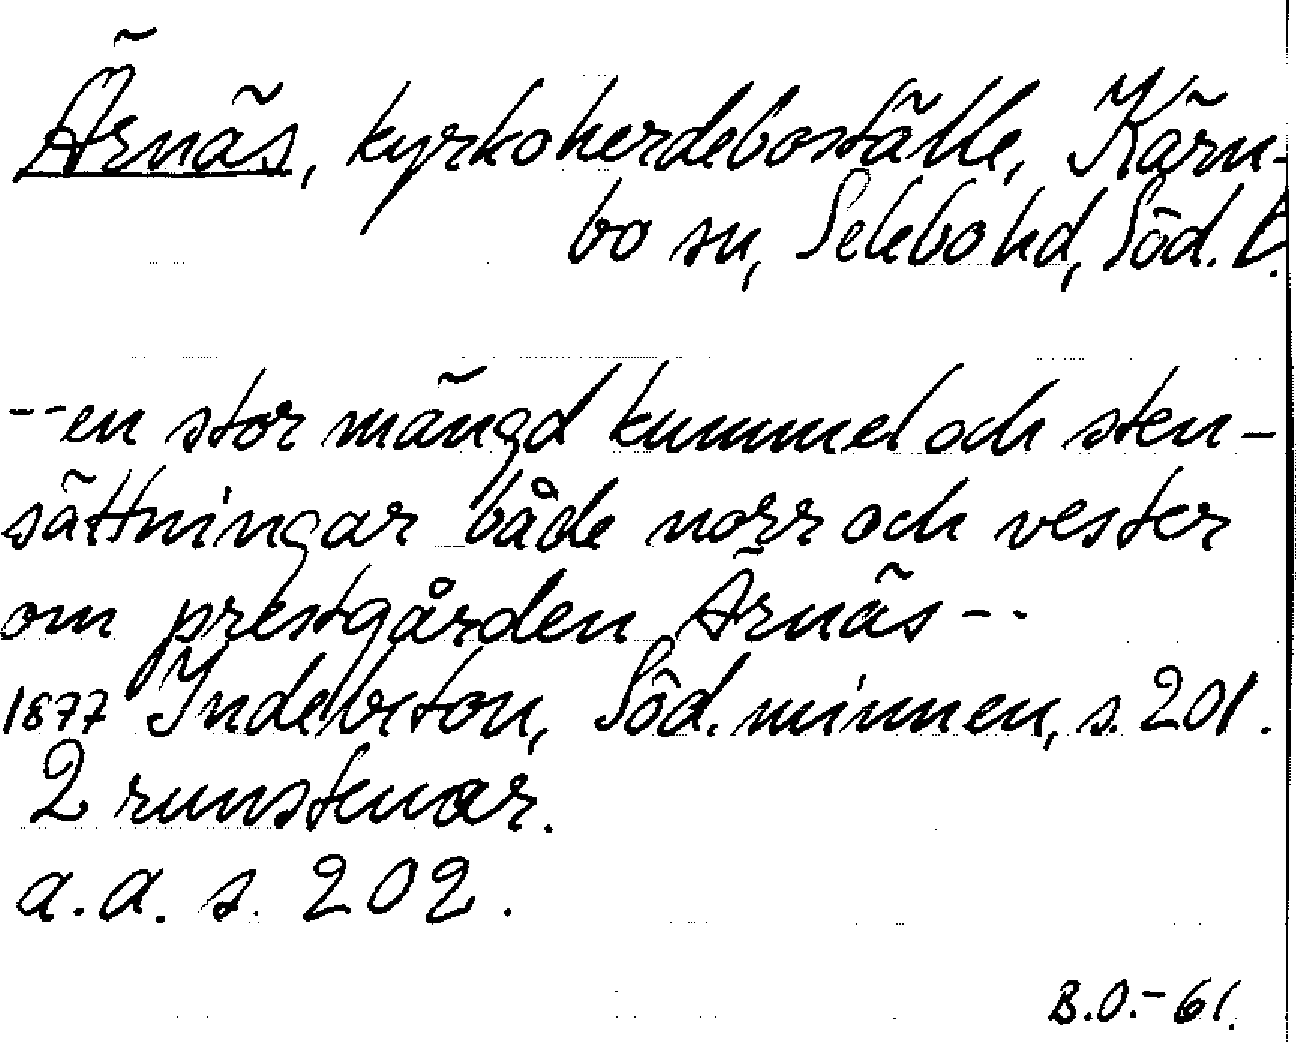 Ärnäs, kyrkoherdeboställe, Kärn-
bo sn, Selebo hd, Söd. L.
--en stor mängd kummel och sten-
sättningar både norr och vester
om prestgården Ärnäs--
1877 Indebetou, Söd. minnen, s. 201.
2 runstenar.
a.a. s. 202.
B.O.-61.